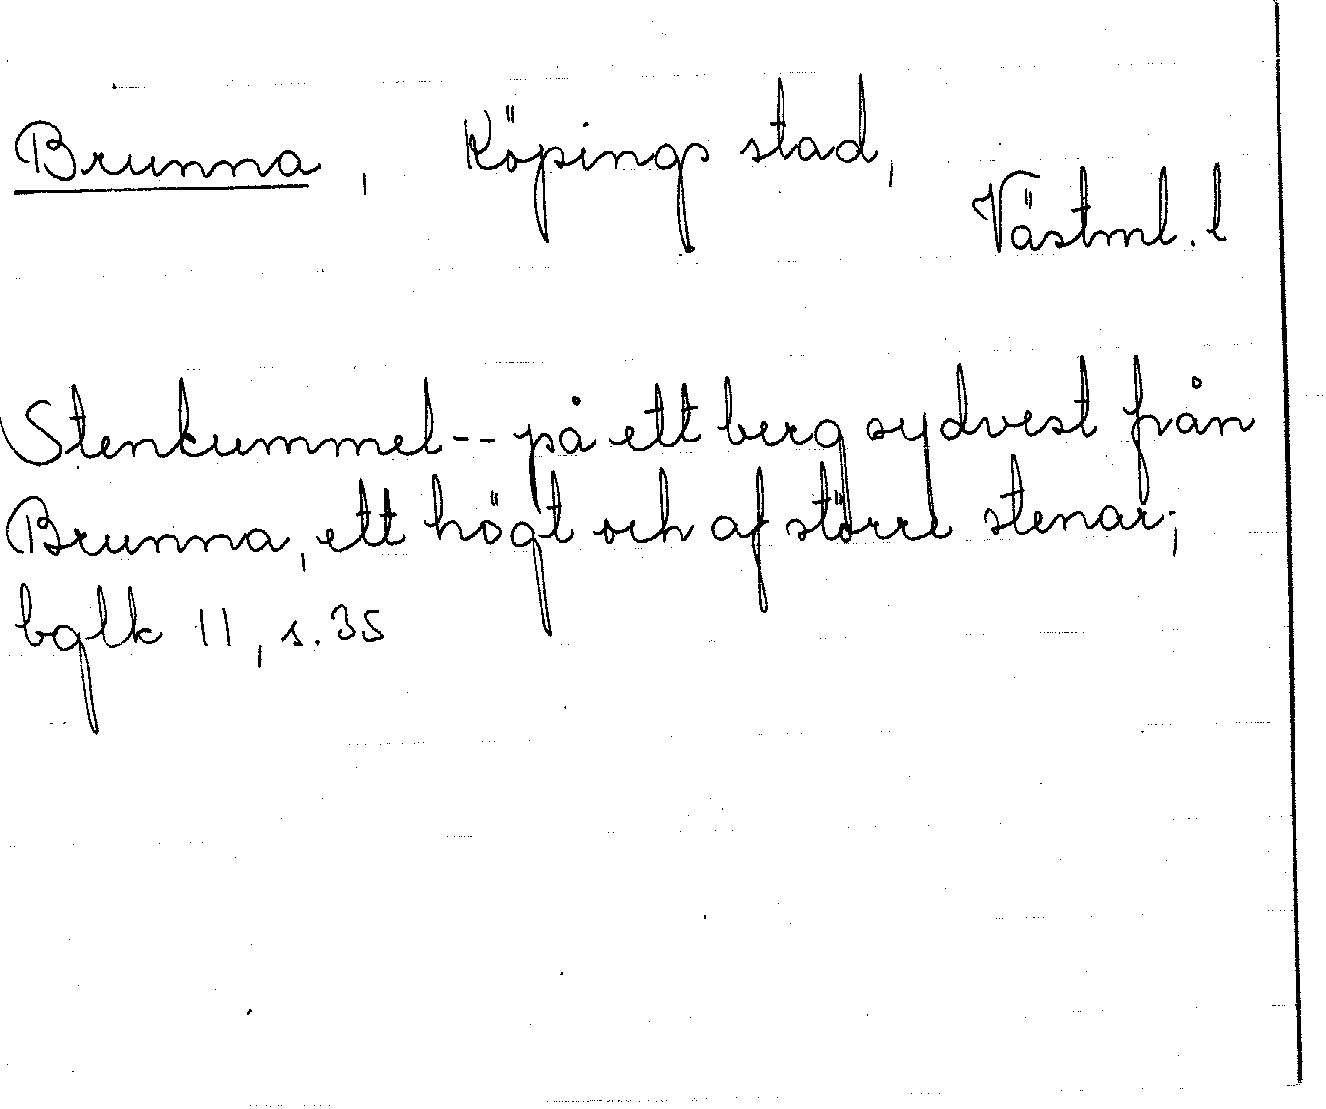 Brunna, Köpings stad,
Västml. l
Stenkummel -- på ett berg sydvest från
Brunna, ett högt och af större stenar;
bglk 11, s. 35